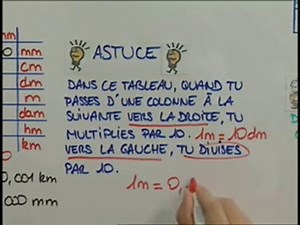 mm
0 mm
cm
dm
m
dam
hm
km
0,001 km
000 mm
ASTUCE
DANS CE TABLEAU, QUAND TU
PASSES D'UNE COLONNE À LA
SUIVANTE VERS LA DROITE, TU
MULTIPLIES PAR 10. 1m = 10dm
VERS LA GAUCHE, TU DIVISES
PAR 10.
1m = 0,